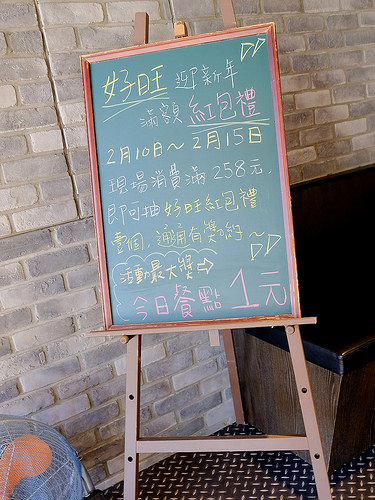 好旺 迎新年
滿額 紅包禮
2月10日~2月15日
現場消費滿258元，
即可抽好旺紅包禮
壹個，通通有獎喲~
活動最大獎⇨
今日餐點 1元